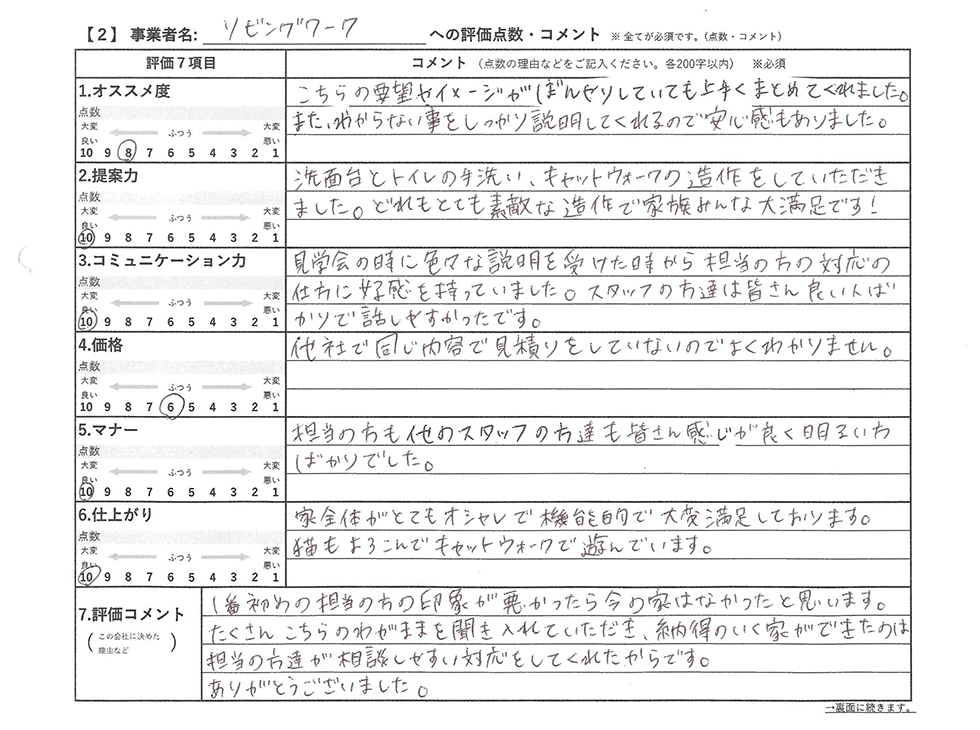 【2】 事業者名: リビングワーク への評価点数・コメント ※ 全てが必須です。(点数・コメント)
評価7項目 コメント (点数の理由などをご記入ください。各200字以内) ※必須
1.オススメ度
点数
大変良い ふつう 大変悪い
10 9 8 7 6 5 4 3 2 1
こちらの要望やイメージがぼんやりしていても上手くまとめてくれました。
また、わからない事をしっかり説明してくれるので安心感もありました。
2.提案力
点数
大変良い ふつう 大変悪い
10 9 8 7 6 5 4 3 2 1
洗面台とトイレの手洗い、キャットウォークの造作をしていただき
ました。どれもとても素敵な造作で家族みんな大満足です!
3.コミュニケーション力
点数
大変良い ふつう 大変悪い
10 9 8 7 6 5 4 3 2 1
見学会の時に色々な説明を受けた時から担当の方の対応の
仕方に好感を持っていました。スタッフの方達は皆さん良い人ば
かりで話しやすかったです。
4.価格
点数
大変良い ふつう 大変悪い
10 9 8 7 6 5 4 3 2 1
他社で同じ内容で見積りをしていないのでよくわかりません。
5.マナー
点数
大変良い ふつう 大変悪い
10 9 8 7 6 5 4 3 2 1
担当の方も他のスタッフの方達も皆さん感じが良く明るい方
ばかりでした。
6.仕上がり
点数
大変良い ふつう 大変悪い
10 9 8 7 6 5 4 3 2 1
家全体がとてもオシャレで機能的で大変満足しております。
猫もよろこんでキャットウォークで遊んでいます。
7.評価コメント
(この会社に決めた理由など)
1番初めの担当の方の印象が悪かったら今の家はなかったと思います。
たくさんこちらのわがままを聞き入れていただき、納得のいく家ができたのは
担当の方達が相談しやすい対応をしてくれたからです。
ありがとうございました。
→裏面に続きます。